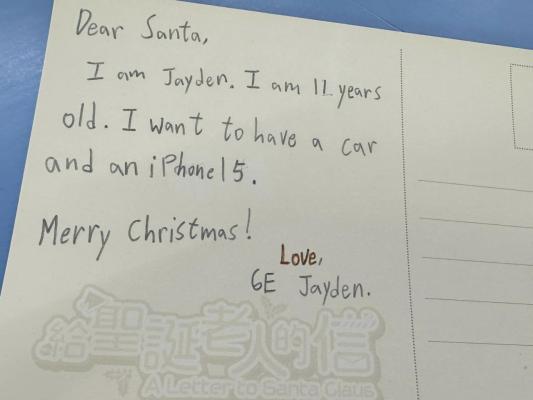 Dear Santa,
I am Jayden. I am 11 years
old. I want to have a car
and an iPhone15.
Merry Christmas!
Love,
6E Jayden.
給聖誕老人的信
A Letter to Santa Claus